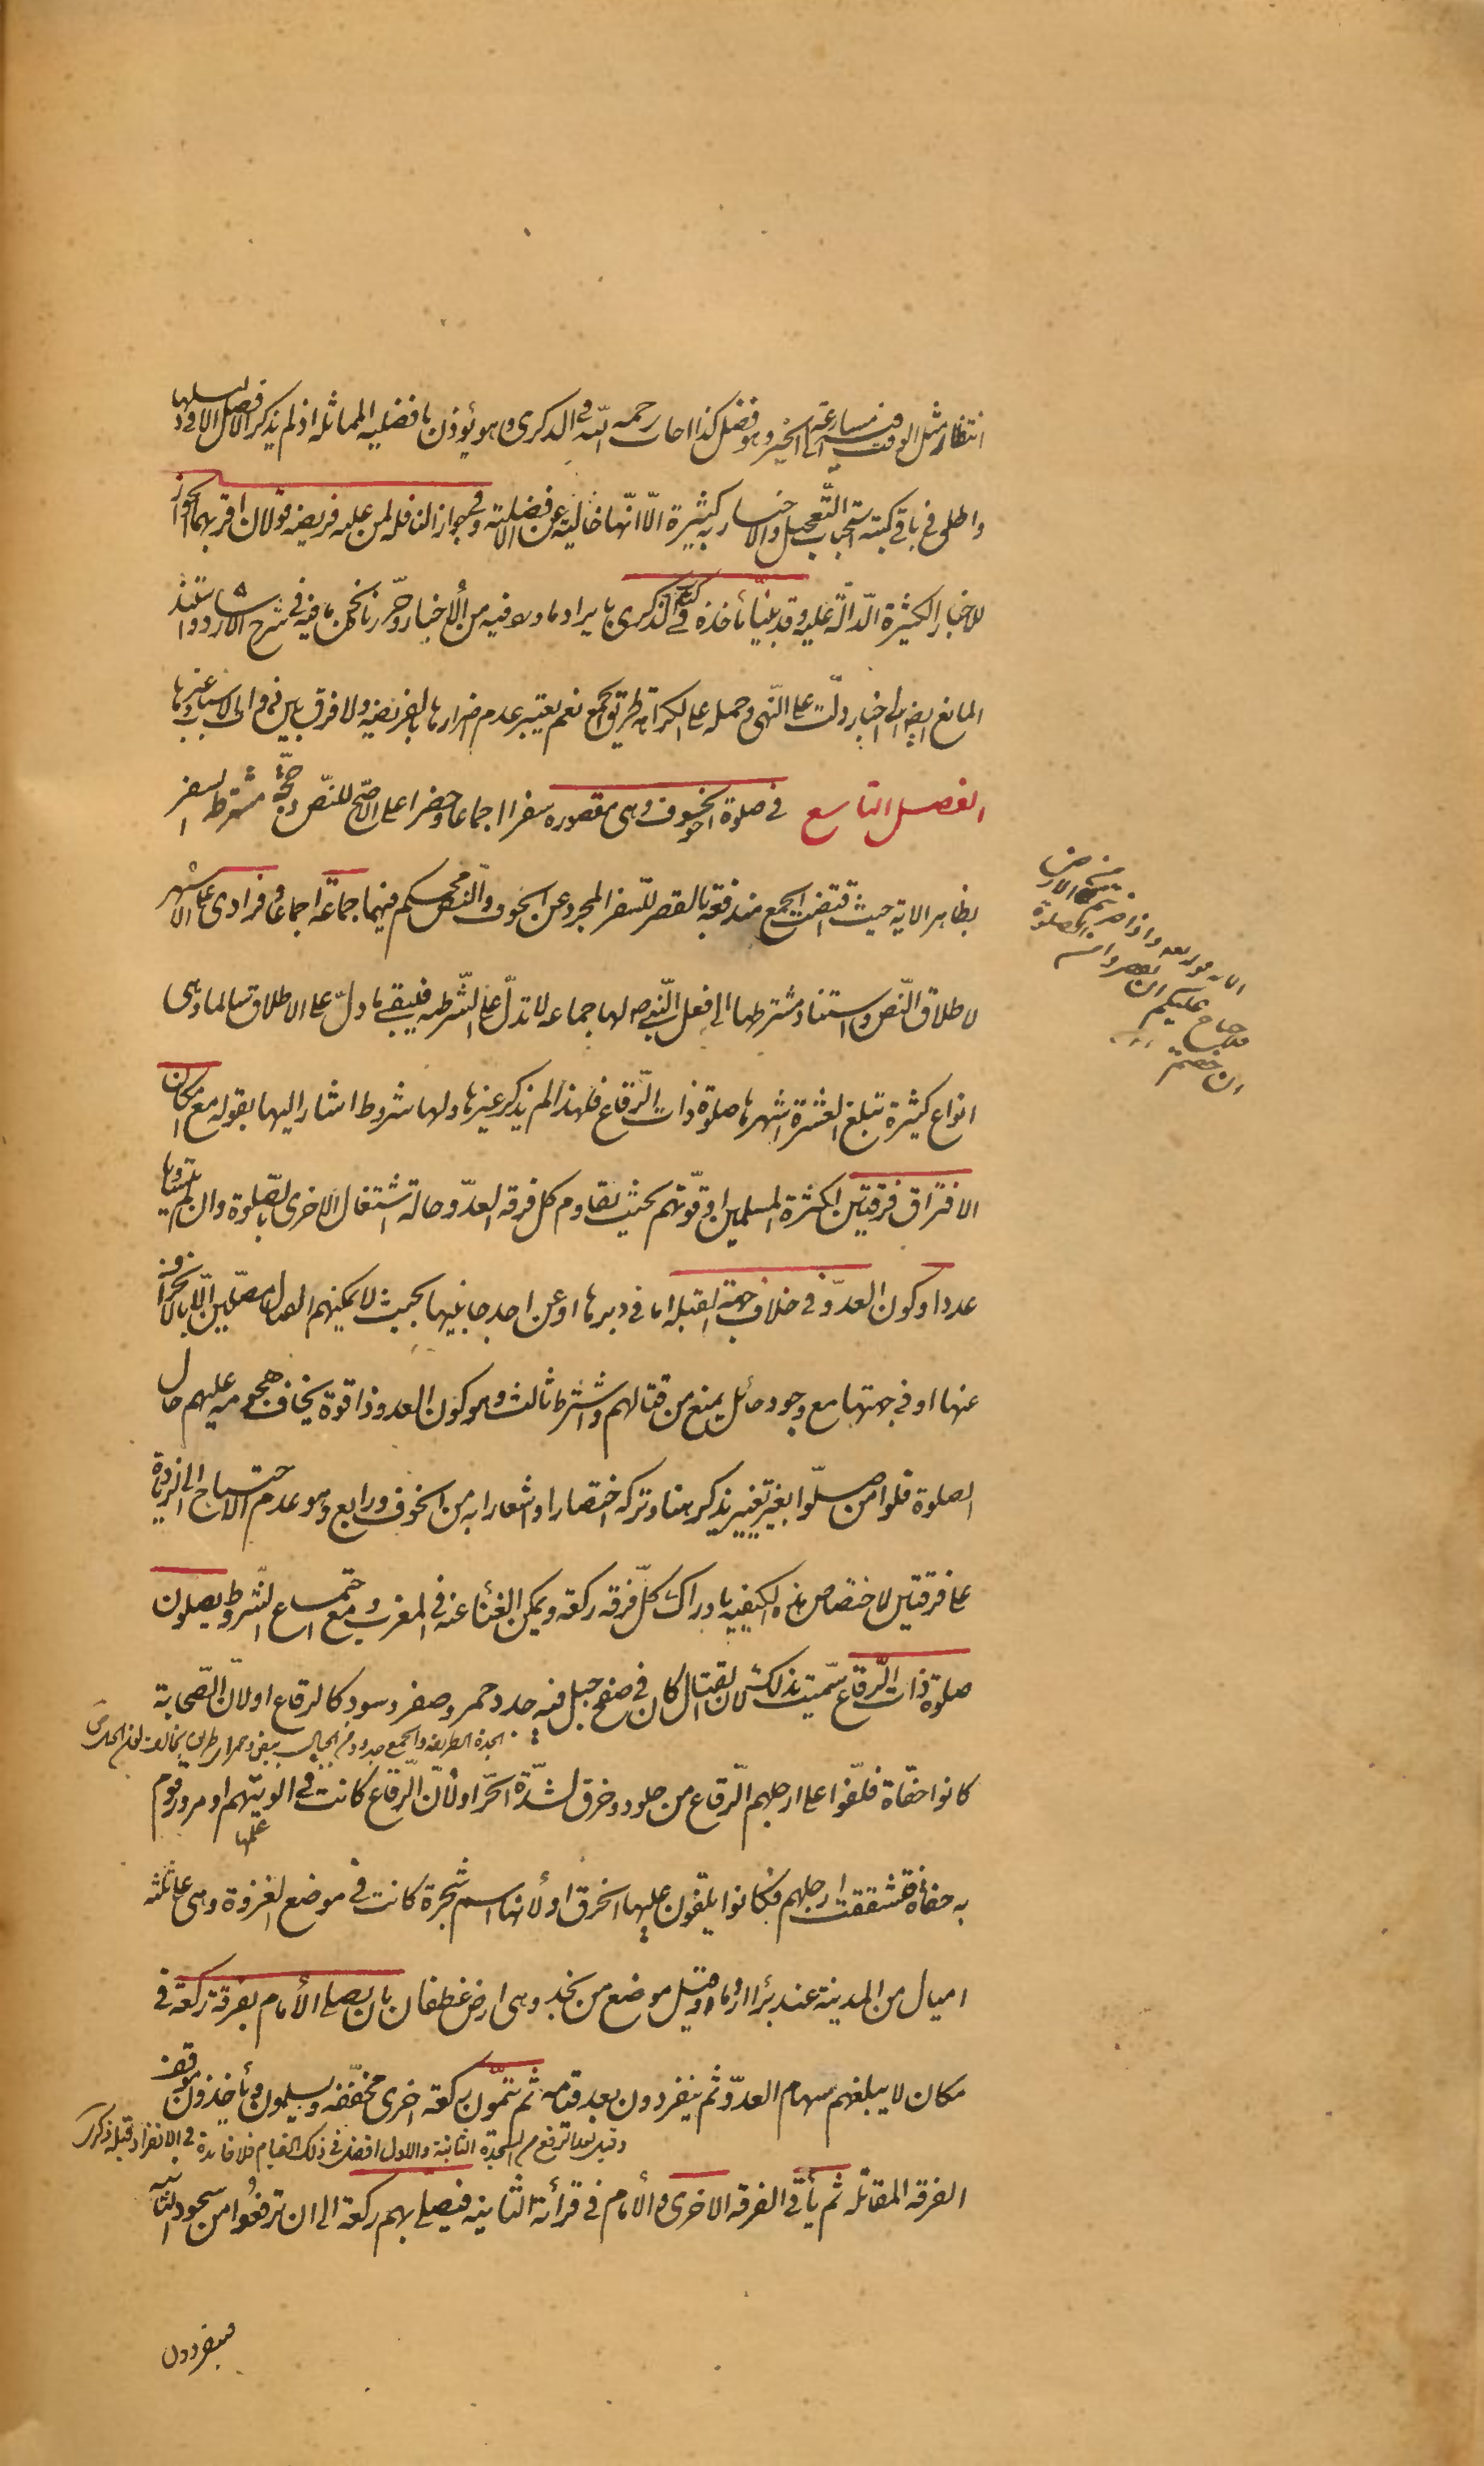 انتظار مثل الوقت مسارعة الى الخير وهو فضل كذا اجاب رحمه الله في الذكرى وهو يؤذن بافضلية المماثلة اذ لم يذكر الافضل الا في دليلها
واطلق في باقي كتبه استحباب التعجيل والاخبار به كثيرة الا انها خالية عن الافضلية وفي جواز النافلة لمن عليه فريضة قولان اقربهما الجواز
للاخبار الكثيرة الدالة عليه وقد بينا مأخذه في كتاب الذكرى بايراد ما ورد فيه من الاخبار وحررنا نحن ما فيه في شرح الارشاد واستند
المانع ايضا الى اخبار دلت على النهى وحمله على الكراهة طريق الجمع نعم يعتبر عدم اضرارها بالفريضة ولا فرق بين ذوات الاسباب وغيرها
الفصل التاسع في صلوة الخوف وهى مقصورة سفرا اجماعا وحضرا على الاصح للنص وحجة مشترط السفر
بظاهر الاية حيث اقتضت الجمع مندفعة بالقصر للسفر المجرد عن الخوف والنص محكم فيهما جماعة اجماعا وفرادى على الاشهر
لاطلاق النص واستناد مشترطها الى فعل النبي ص لها جماعة لا تدل على الشرطية فيبقى ما دل على الاطلاق سالما وهى
انواع كثيرة تبلغ العشرة اشهرها صلوة ذات الرقاع فلهذا لم يذكر غيرها ولها شروط اشار اليها بقوله مع امكان
الافتراق فرقتين لكثرة المسلمين او قوتهم بحيث يقاوم كل فرقة العدو حالة اشتغال الاخرى بالصلوة وان لم يتساويا
عددا وكون العدو في خلاف جهة القبلة اما في دبرها او عن احد جانبيها بحيث لا يمكنهم القتال مصلين الا بالانحراف
عنها او في جهتها مع وجود حائل يمنع من قتالهم واشترط ثالث وهو كون العدو ذا قوة يخاف هجومه عليهم حال
الصلوة فلو امن صلوا بغير تغيير يذكر هنا وتركه اختصارا او اشعارا به من الخوف ورابع وهو عدم الاحتياج الى الزيادة
على فرقتين لاختصاص هذه الكيفية بادراك كل فرقة ركعة ويمكن الغناء عنه في المغرب ومع اجتماع الشروط يصلون
صلوة ذات الرقاع سميت بذلك لان القتال كان في صفح جبل فيه جدد حمر وصفر وسود كالرقاع او لان الصحابة
الجدة الطريقة والجمع جدد ومن الجبال جدد بيض وحمر اى طرائق تخالف لون الجبل
كانوا حفاة فلفوا على ارجلهم الرقاع من جلود وخرق لشدة الحر او لان الرقاع كانت في الويتهم او مرور قوم
عليها
به حفاة فتشققت ارجلهم فكانوا يلفون عليها الخرق او لانها اسم شجرة كانت في موضع الغزوة وهى على ثلثة
اميال من المدينة عند بئر اروما وقيل موضع من نجد وهى ارض غطفان بان يصلى الأمام بفرقة ركعة في
مكان لا يبلغهم سهام العدو ثم ينفردون بعد قيامه ثم يتمون ركعة اخرى مخففة ويسلمون ويأخذون موقف
وقيل بعد الرفع من السجدة الثانية والاول افضل في ذلك القيام فلا فائدة في الانفراد قبله
الفرقة المقاتلة ثم يأتي الفرقة الاخرى والأمام في قرائة الثانية فيصلى بهم ركعة الى ان ترفعوا من سجود الثانية
فينفردون
واذا ضربتم في الارض
فلا جناح عليكم ان تقصروا من الصلوة
ان خفتم